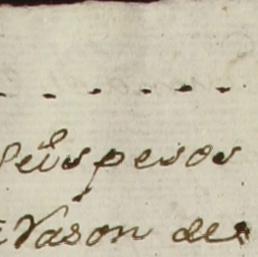 Seis pesos
Vason de